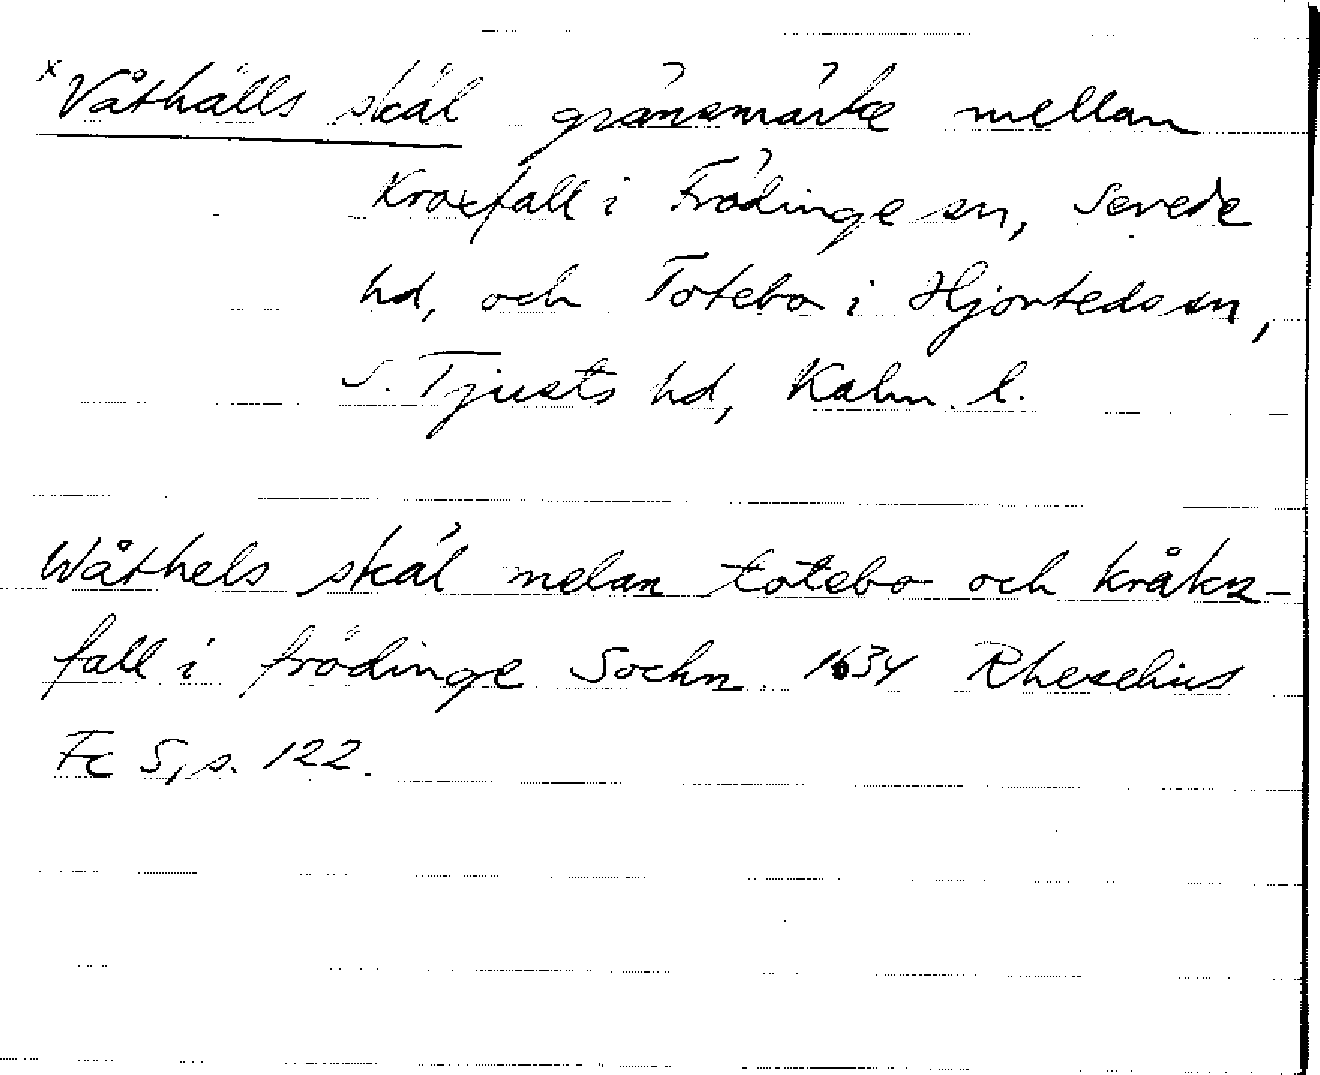 x Våthälls skäl gränsmärke mellan
Kroxfall i Frödinge sn, Sevede
hd, och Totebo i Hjorteds sn,
S. Tjusts hd, Kalm. l.
Wåthels skäl melan totebo och kråkz-
fall i frödinge Sochn. 1634 Rhezelius
Fc 5, s. 122.